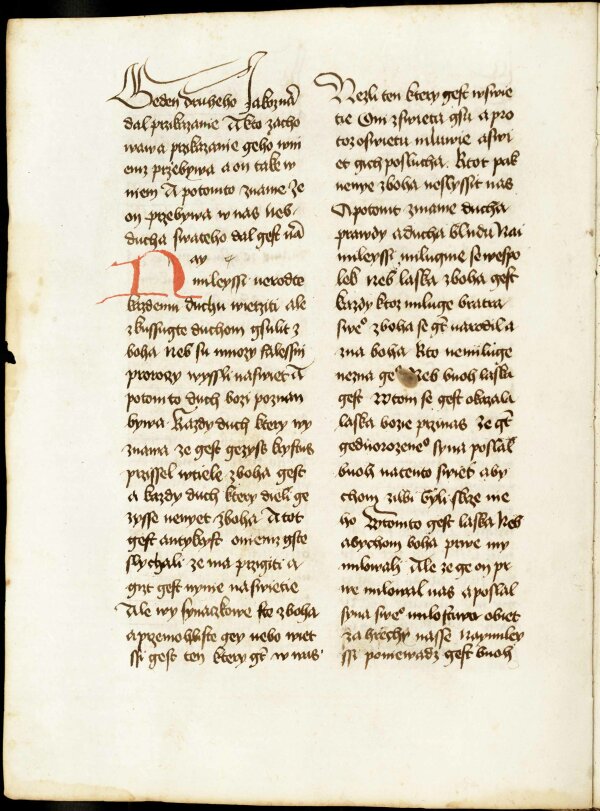 Geden druheho Jakoz nā
dal przikazanie A kto zacho
wawa przikazanie geho w ni
emz przebywa a on take w
niem A potomto zname ze
on przebywa w nas neb
ducha swateho dal gest nā
Nay
mileyssi nerodte
kazdemu duchu wierziti ale
zkussugte duchom gsulit z
boha Neb su mnozy falessni
prorozy wyssli na swiet A
potom to duch bozi poznan
bywa Kazdy duch ktery wy
znawa ze gest gezyss krystus
przissel w tiele z boha gest
a kazdy duch ktery dieli ge
zysse nenyet z boha A tot
gest antykryst o niemz gste
slychali ze ma przigiti a
giz gest nynie na swietie
Ale wy synaczkowe gste z boha
a przemohliste gey nebo wiet
ssi gest ten ktery gt w nas
Nezli ten ktery gest w swie
tie Oni z swieta gsu a pro
toz o swietu mluwie a swi
et gich poslucha Ktot pak
nenye z boha neslyssit nas
A potomt zname ducha
prawdy a ducha bludu Nai
mileyssi milugme se wespo
lek Neb laska z boha gest
kazdy ktoz miluge bratra
sweo z boha se gt narodil a
zna boha Kto nemiluge
nezna geo Neb buoh laska
gest W tom se gest okazala
laska bozie przi nas ze gt
gednorozeneo syna poslal
buoh na tento swiet aby
chom ziwi byli skrze nie
ho W tomto gest laska Neb
abychom boha prwe my
milowali Ale ze ge on pr
we milowal nas a poslal
syna sweo milostiwu obiet
za hrzechy nasse Naymiley
ssi poniewadz gest buoh